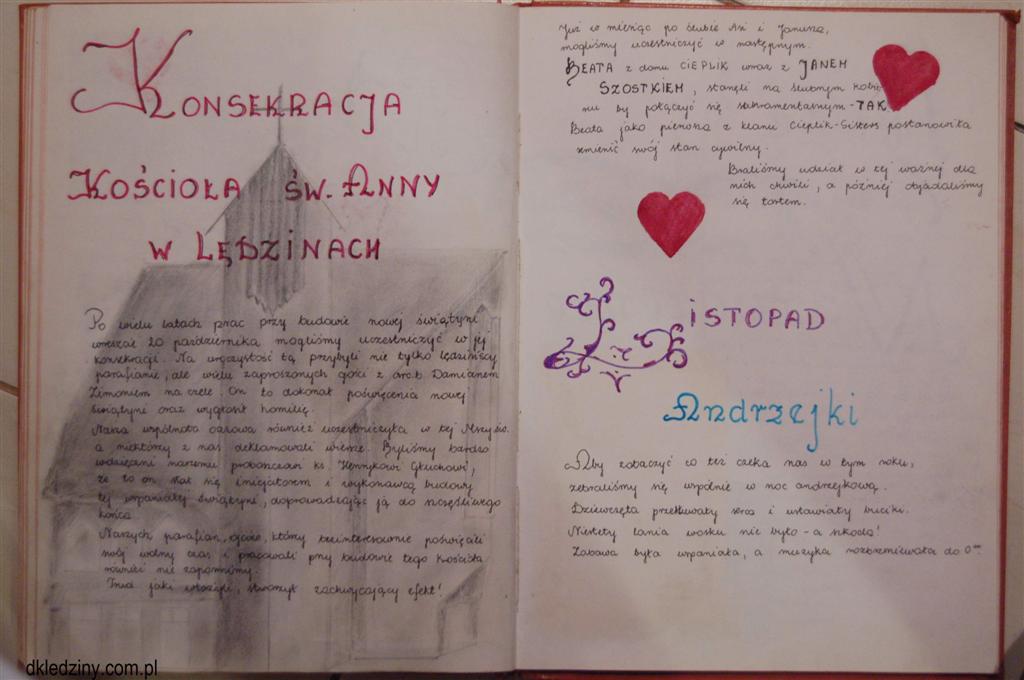 Konsekracja
Kościoła św. Anny
w Lędzinach
Po wielu latach prac przy budowie nowej świątyni
wreszcie 20 października mogliśmy uczestniczyć w jej
konsekracji. Na uroczystość tą przybyli nie tylko lędzińscy
parafianie, ale wielu zaproszonych gości z arc.b. Damianem
Zimoniem na czele. On to dokonał poświęcenia nowej
świątyni oraz wygłosił homilię.
Nasza wspólnota oazowa również uczestniczyła w tej Mszy św.
a niektórzy z nas deklamowali wiersze. Byliśmy bardzo
wdzięczni naszemu proboszczowi ks. Henrykowi
że to on stał się inicjatorem i wykonawcą budowy
tej wspaniałej świątyni, doprowadzając ją do szczęśliwego
końca.
Naszych parafian, ojców, którzy bezinteresownie poświęcali
swój wolny czas i pracowali przy budowie tego kościoła
również nie zapomnimy.
Trud jaki włożyli, stworzył zachwycający efekt!
Już w miesiąc po ślubie Ani i Janusza,
mogliśmy uczestniczyć w następnym.
BEATA z domu CIEPLIK wraz z JANEM
SZOSTKIEM, stanęli na ślubnym
nu by połączyć się sakramentalnym - TAK
Beata jako pierwsza z klanu Cieplik-Sisters postanowiła
zmienić swój stan cywilny.
Braliśmy udział w tej ważnej dla
nich chwili, a później objadaliśmy
się tortem.
LISTOPAD
Andrzejki
Aby zobaczyć co też czeka nas w tym roku,
zebraliśmy się wspólnie w noc andrzejkową.
Dziewczęta przekłuwały serca i ustawiały buciki.
Niestety lania wosku nie było - a szkoda!
Zabawa była wspaniała, a muzyka rozbrzmiewała do 0°°.
dkledziny.com.pl